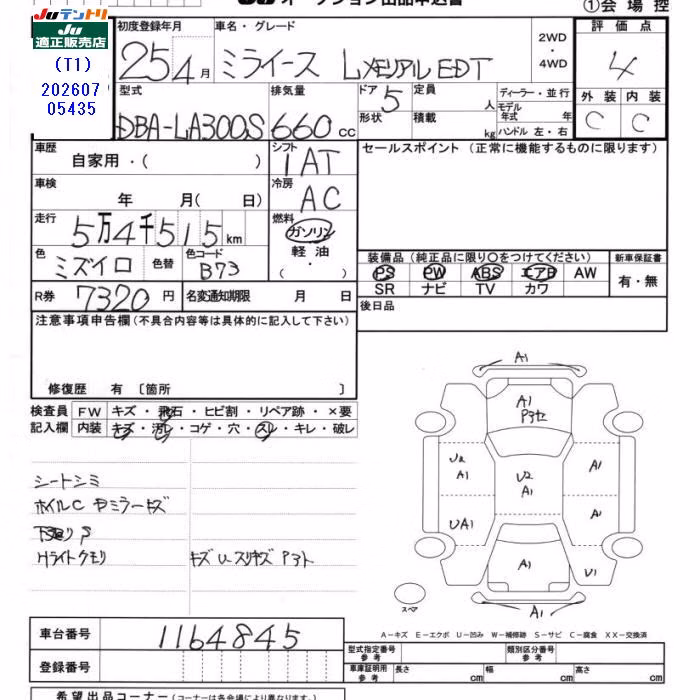 Juテントリ
①会場控
Ju
適正販売店
(T1)
202607
05435
初度登録年月
車名・グレード
評価点
25 4月
ミライース
2WD
・
4WD
4
型式
排気量
ドア
定員
ディーラー・並行
DBA-LA300S
660 cc
5
人
モデル年式 年
外装 内装
形状
積載
kg
ハンドル 左・右
C C
車歴
自家用・( )
シフト
1AT
セールスポイント (正常に機能するものに限ります)
車検
年 月( 日)
冷房
AC
走行
5万4千515km
燃料
ガソリン
軽油
・
( )
色
ミズイロ
色替
色コード
B73
装備品 (純正品に限り〇をつけてください)
新車保証書
PS PW ABS エアB AW
有・無
SR ナビ TV カワ
R券 7320円
名変通知期限 月 日
後日品
注意事項申告欄(不具合内容等は具体的に記入して下さい)
修復歴 有 〔箇所 〕
検査員 FW キズ・飛石・ヒビ割・リペア跡・×要
記入欄 内装 キズ・汚レ・コゲ・穴・スレ・キレ・破レ
シートシミ
ホイルC
ミラーキズ
Hライトクモリ
キズU スリキズ
A1
A1
A1
A1
U2
A1
A1
UA1
A1
A1
U1
A1
スペア
A-キズ E-エクボ U-凹み W-補修跡 S-サビ C-腐食 XX-交換済
車台番号 1164845
型式指定番号 参考
類別区分番号 参考
登録番号
車庫証明用 参考
長さ cm
幅 cm
高さ cm
希望出品コーナー(コーナーは各会場により異なります。)